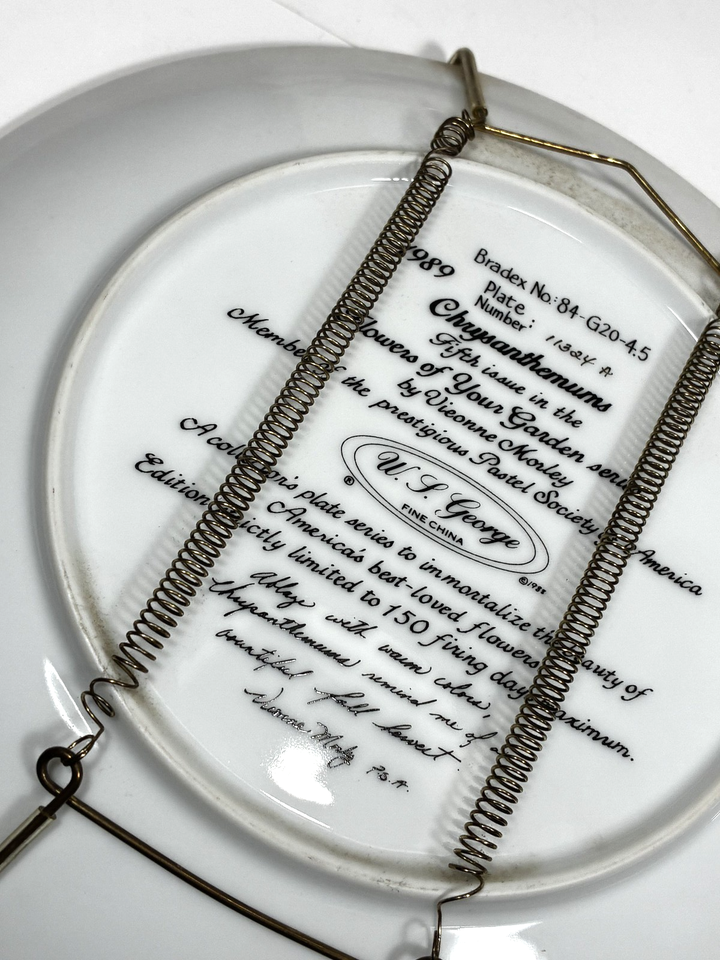 1989
Bradex No.: 84-G20-4.5
Plate Number: 11324 A
Chrysanthemums
Fifth issue in the
Flowers of Your Garden series
by Vieonne Morley
Member of the prestigious Pastel Society of America
W. S. George
FINE CHINA
®
©1988
A collector's plate series to immortalize the beauty of
America's best-loved flowers
Edition strictly limited to 150 firing days maximum.
Ablaze with warm colour,
Chrysanthemums remind me of
bountiful fall harvest.
P.S.A.